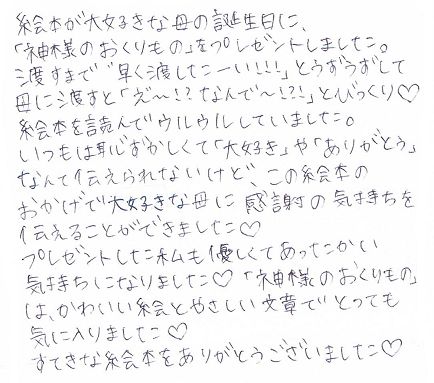 絵本が大好きな母の誕生日に、
「神様のおくりもの」をプレゼントしました。
渡すまで“早く渡したーい!!!”とうずうずして
母に渡すと「え〜!?なんで〜!?!」とびっくり♡
絵本を読んでウルウルしていました。
いつもは恥ずかしくて「大好き」や「ありがとう」
なんて伝えられないけど、この絵本の
おかげで大好きな母に感謝の気持ちを
伝えることができました♡
プレゼントした私も優しくてあったかい
気持ちになりました♡「神様のおくりもの」
は、かわいい絵とやさしい文章でとっても
気に入りました♡
すてきな絵本をありがとうございました♡